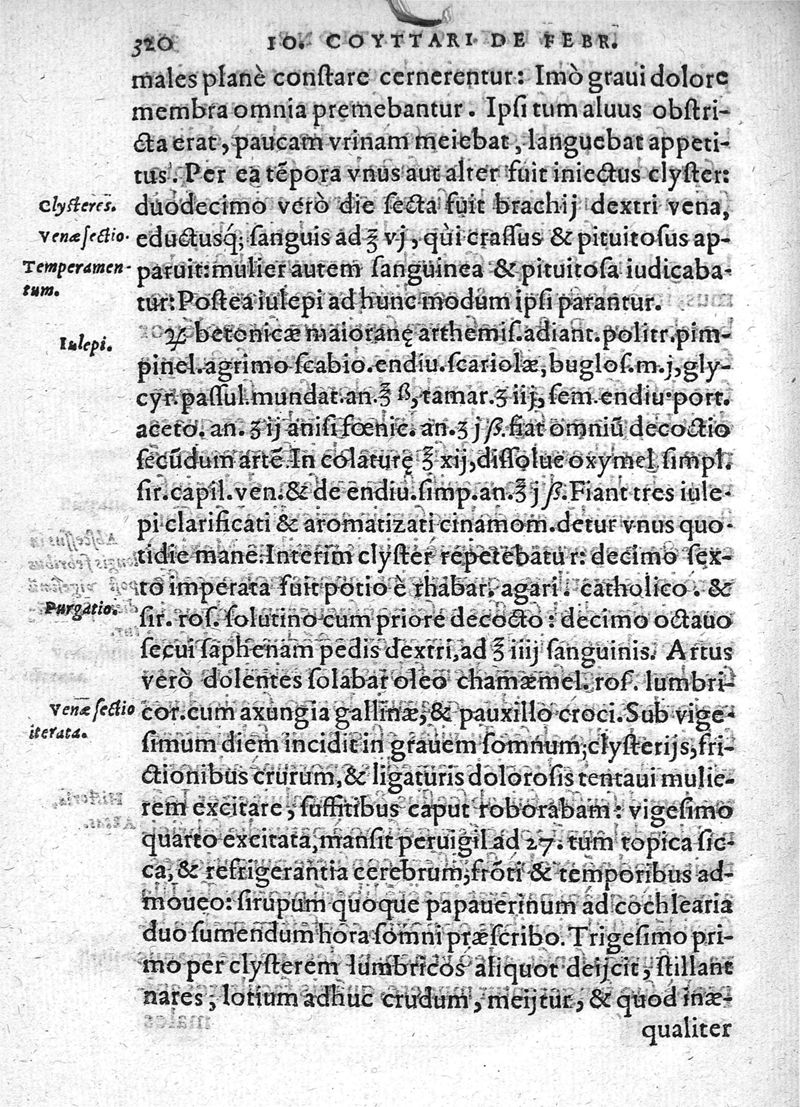 320 IO. COYTTARI DE FEBR.
males planè conſtare cernerentur: Imò graui dolore
membra omnia premebantur. Ipſi tum aluus obſtri-
cta erat, paucam vrinam meiebat, languebat appeti-
tus. Per ea tẽpora vnus aut alter fuit iniectus clyſter:
Clyſteres.
duodecimo verò die ſecta fuit brachij dextri vena,
Venæ ſectio.
eductusq́; ſanguis ad ℥ vj, qùi craſſus & pituitoſus ap-
Temperamen-
tum.
paruit: mulier autem ſanguinea & pituitoſa iudicaba-
tur: Poſtea iulepi ad hunc modum ipſi parantur.
Iulepi.
♃ betonicæ maioranę arthemiſ. adiant. politr. pim-
pinel. agrimo ſcabio. endiu. ſcariolæ, bugloſ. m. j, gly-
cyr. paſſul. mundat. an. ℥ ß, tamar. ʒ iij, ſem. endiu. port.
aceto. an. ʒ ij aniſi fœnic. an. ʒ j ß. fiat omniũ decoctio
ſecũdum artẽ. In colaturę ℥ xij, diſſolue oxymel ſimpl.
ſir. capil. ven. & de endiu. ſimp. an. ℥ j ß. Fiant tres iule-
pi clarificati & aromatizati cinamom. detur vnus quo-
tidie manè. Interim clyſter repetebatur: decimo ſex-
to imperata fuit potio è rhabar. agari. catholico. &
Purgatio.
ſir. roſ. ſolutino cum priore decocto: decimo octauo
ſecui ſaphenam pedis dextri, ad ℥ iiij ſanguinis. Artus
verò dolentes ſolabar oleo chamæmel. roſ. lumbri-
Venæ ſectio
iterata.
cor. cum axungia gallinæ, & pauxillo croci. Sub vige-
ſimum diem incidit in grauem ſomnum; clyſterijs, fri-
ctionibus crurum, & ligaturis doloroſis tentaui mulie-
rem excitare, ſuffitibus caput roborabam: vigeſimo
quarto excitata, manſit peruigil ad 27. tum topica ſic-
ca, & refrigerantia cerebrum, frõti & temporibus ad-
moueo: ſirupum quoque papauerinum ad cochlearia
duo ſumendum hora ſomni præſcribo. Trigeſimo pri-
mo per clyſterem lumbricos aliquot deijcit, ſtillant
nares, lotium adhuc crudum, meijtur, & quod inæ-
qualiter